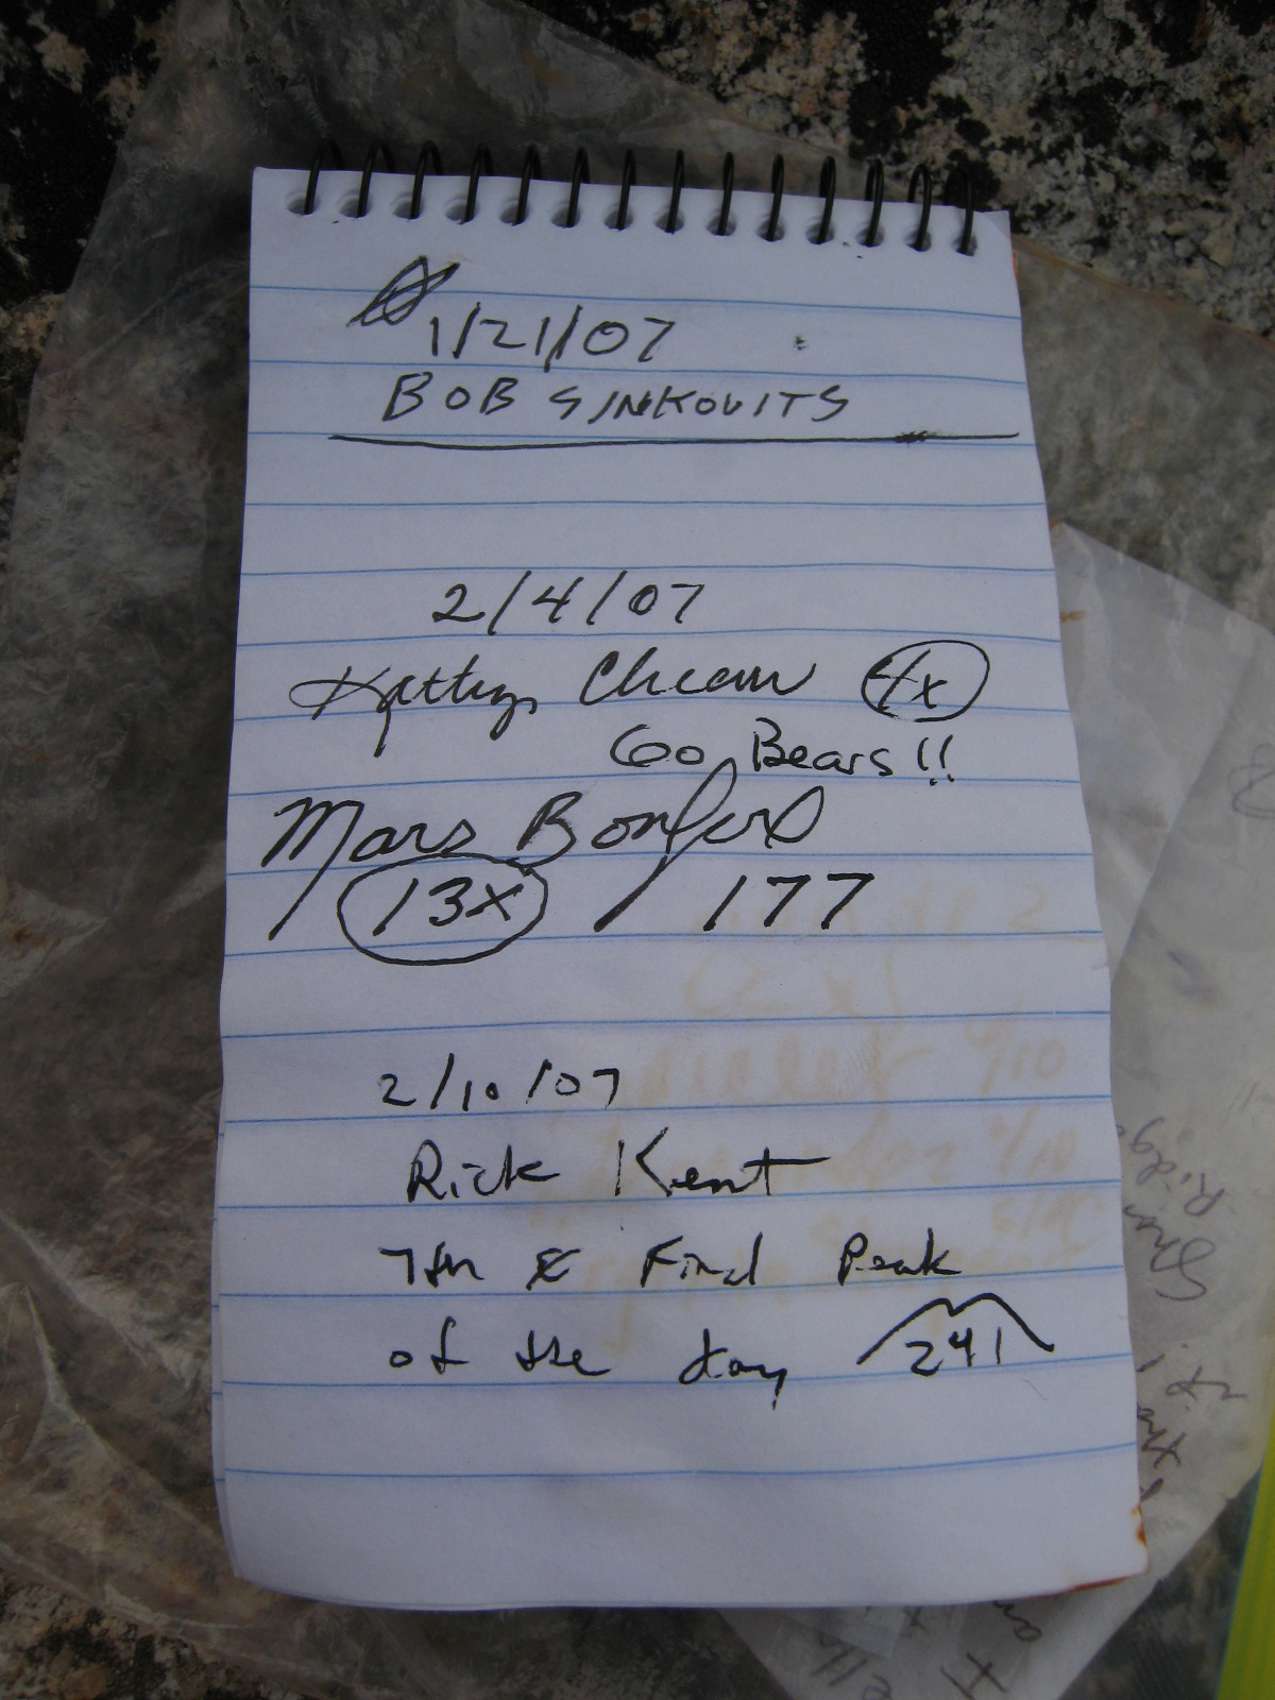 1/21/07
BOB SINKOVITS
2/4/07
Kathy Cheever 4x
Go Bears!!
Mars Bonfire
13x / 177
2/10/07
Rick Kent
7th & Final Peak
of the day 241
Ridge